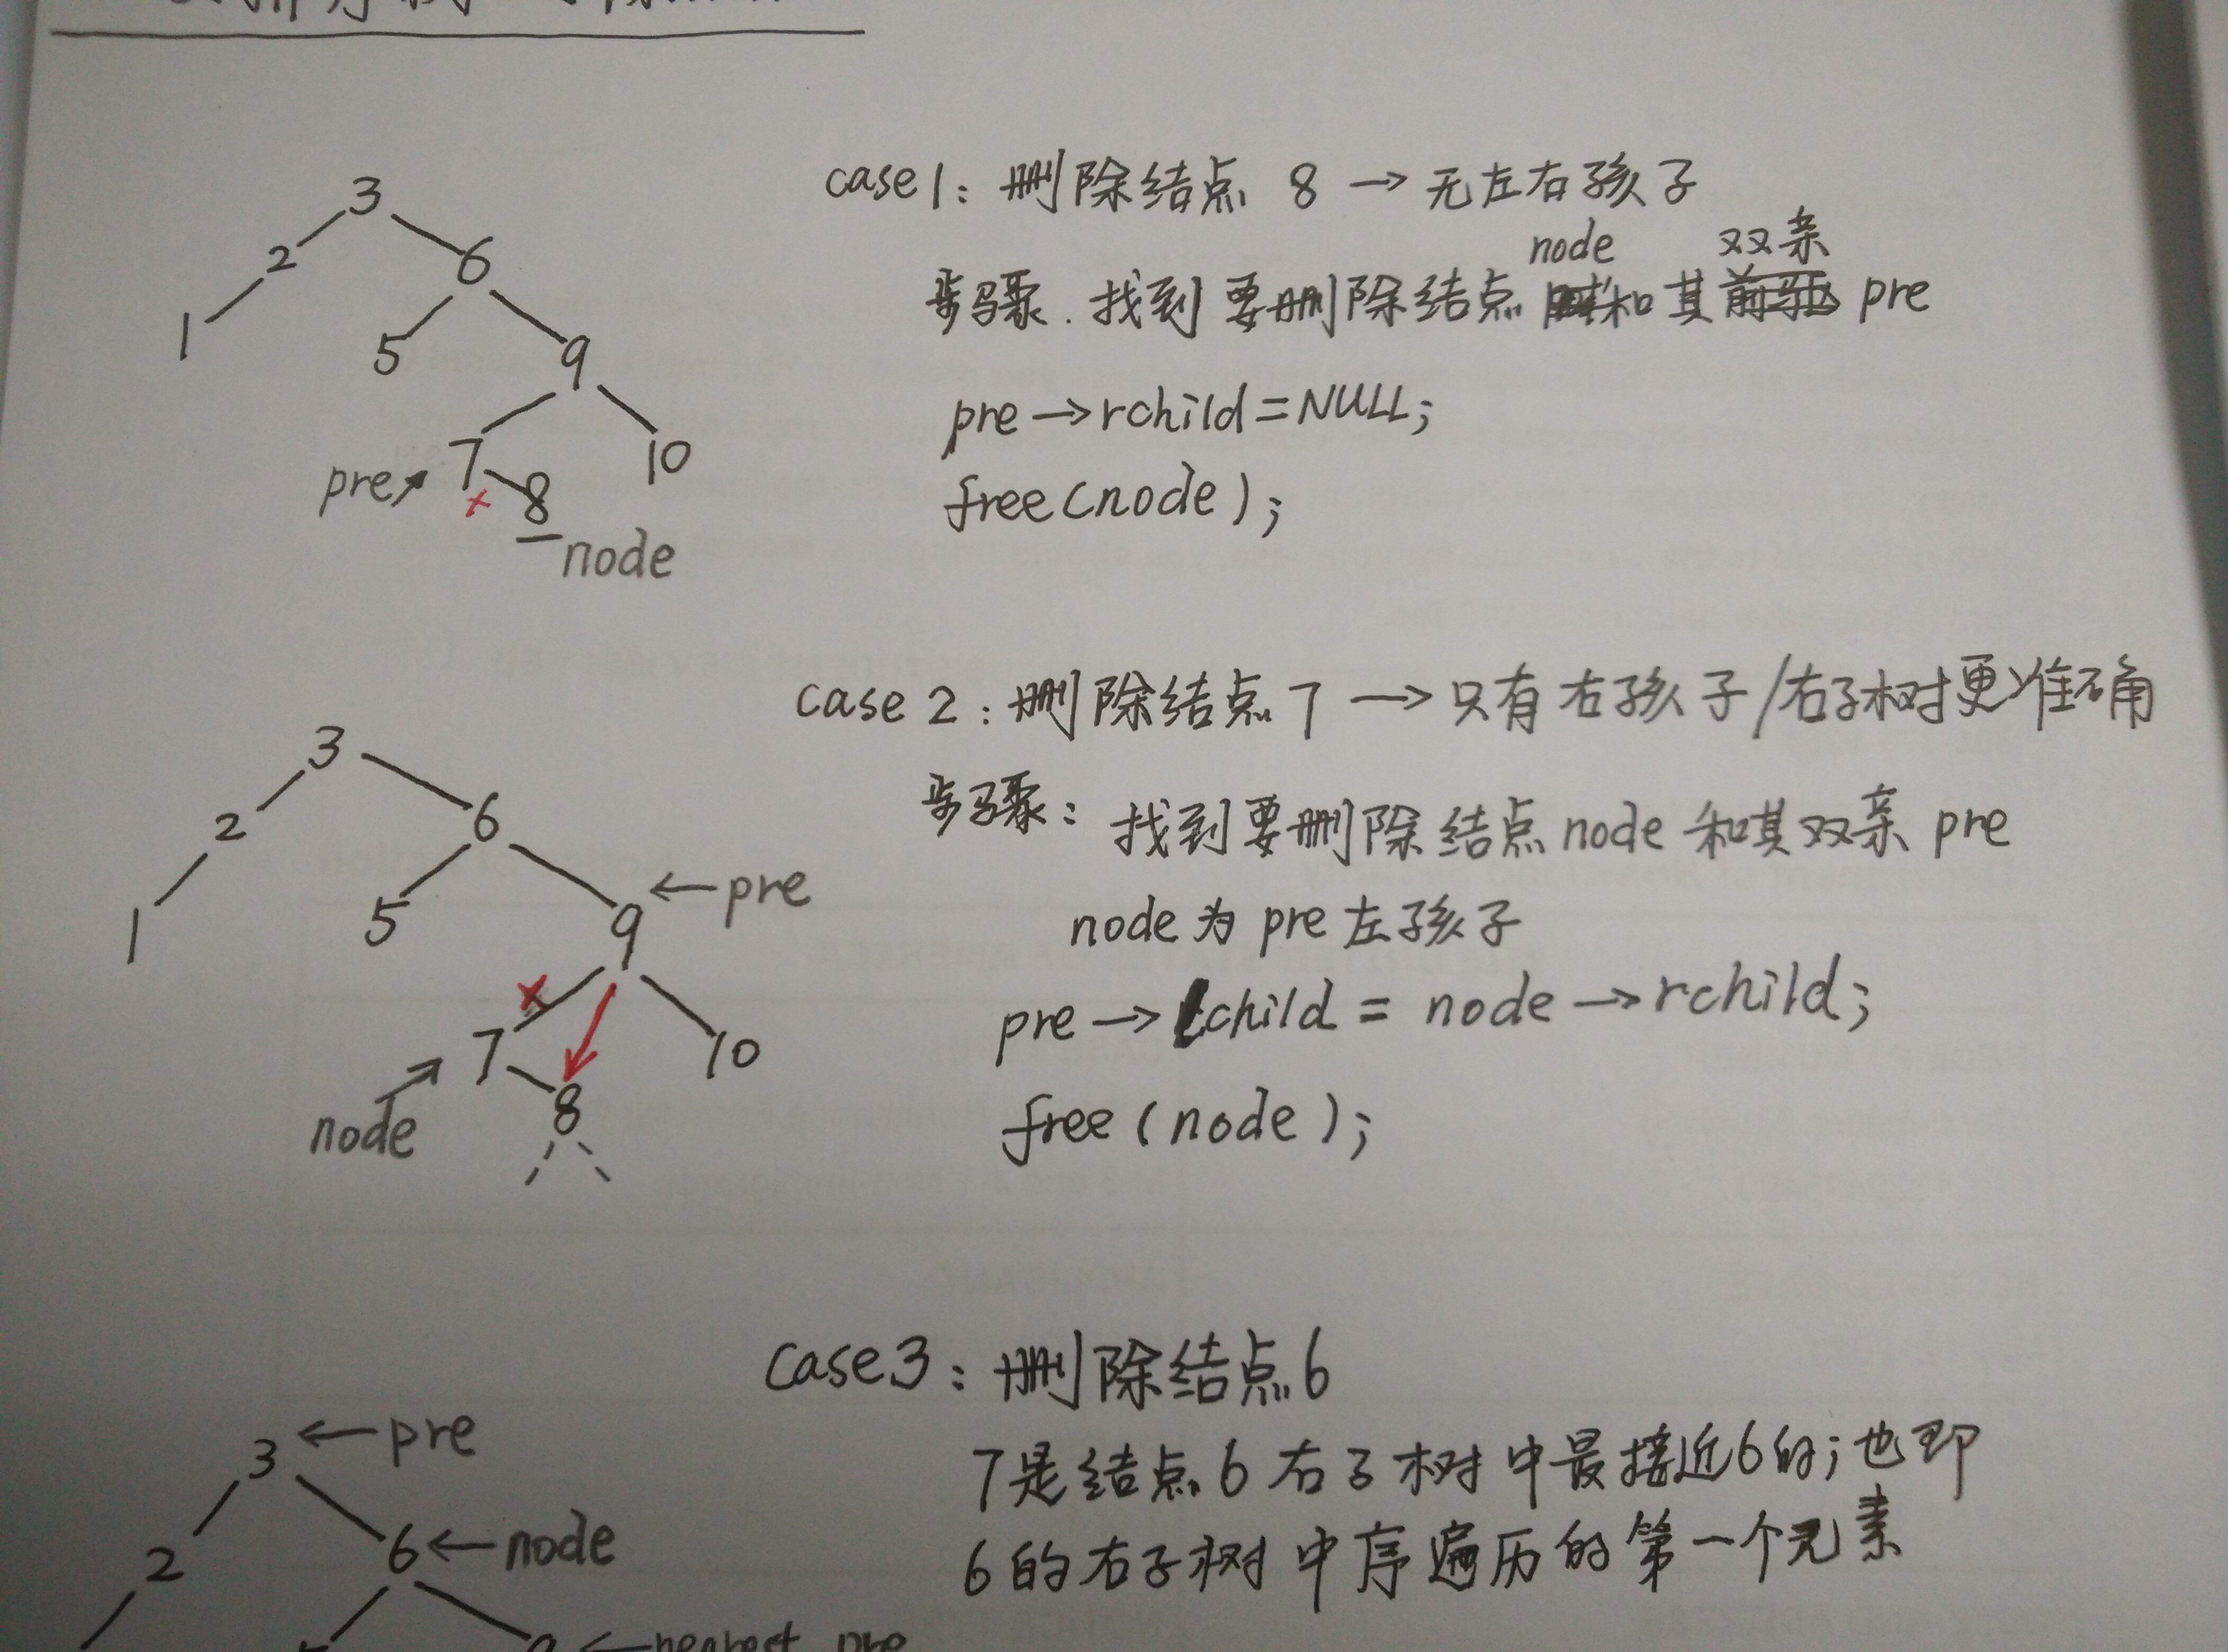 case1: 删除结点 8 → 无左右孩子
node 双亲
步骤. 找到要删除结点 和其 pre
pre→rchild=NULL;
free(node);
3
2 6
1 5 9
7 10
pre→ 8
node
case 2: 删除结点 7 → 只有右孩子/右子树更准确
步骤: 找到要删除结点node 和其双亲 pre
node 为 pre 左孩子
pre→lchild = node→rchild;
free(node);
3
2 6
←pre
1 5 9
7 10
node 8
case3: 删除结点6
7是结点6右子树中最接近6的;也即
6的右子树中序遍历的第一个元素
3 ←pre
2 6 ←node
5 9 ←nearest_pre